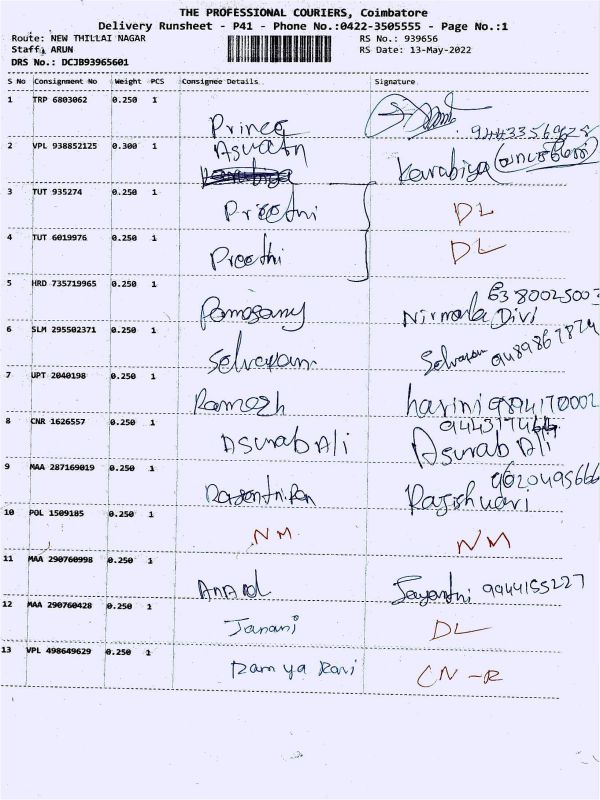 THE PROFESSIONAL COURIERS, Coimbatore
Delivery Runsheet - P41 - Phone No.:0422-3505555 - Page No.:1
Route: NEW THILLAI NAGAR RS No.: 939656
Staff: ARUN RS Date: 13-May-2022
DRS No.: DCJB93965601
S No Consignment No Weight PCS Consignee Details Signature
1 TRP 6803062 0.250 1 Prince 9443356928
2 VPL 938852125 0.300 1 Aswatn Karabiya
3 TUT 935274 0.250 1 Preethi DL
4 TUT 6019976 0.250 1 Preethi DL
5 HRD 735719965 0.250 1 Nirmala Divi
6 SLM 295502371 0.250 1 Selvaram 9489867874
7 UPT 2040198 0.250 1 Ramesh harini 9894170002
8 CNR 1626557 0.250 1 Asurab Ali Asurab Ali
9 MAA 287169019 0.250 1 Rajishwari 9620495666
10 POL 1509185 0.250 1 NM NM
11 MAA 290760998 0.250 1 Anand Jayanthi 9944155227
12 MAA 290760428 0.250 1 Janani DL
13 VPL 498649629 0.250 1 Ramya Ravi CN-R